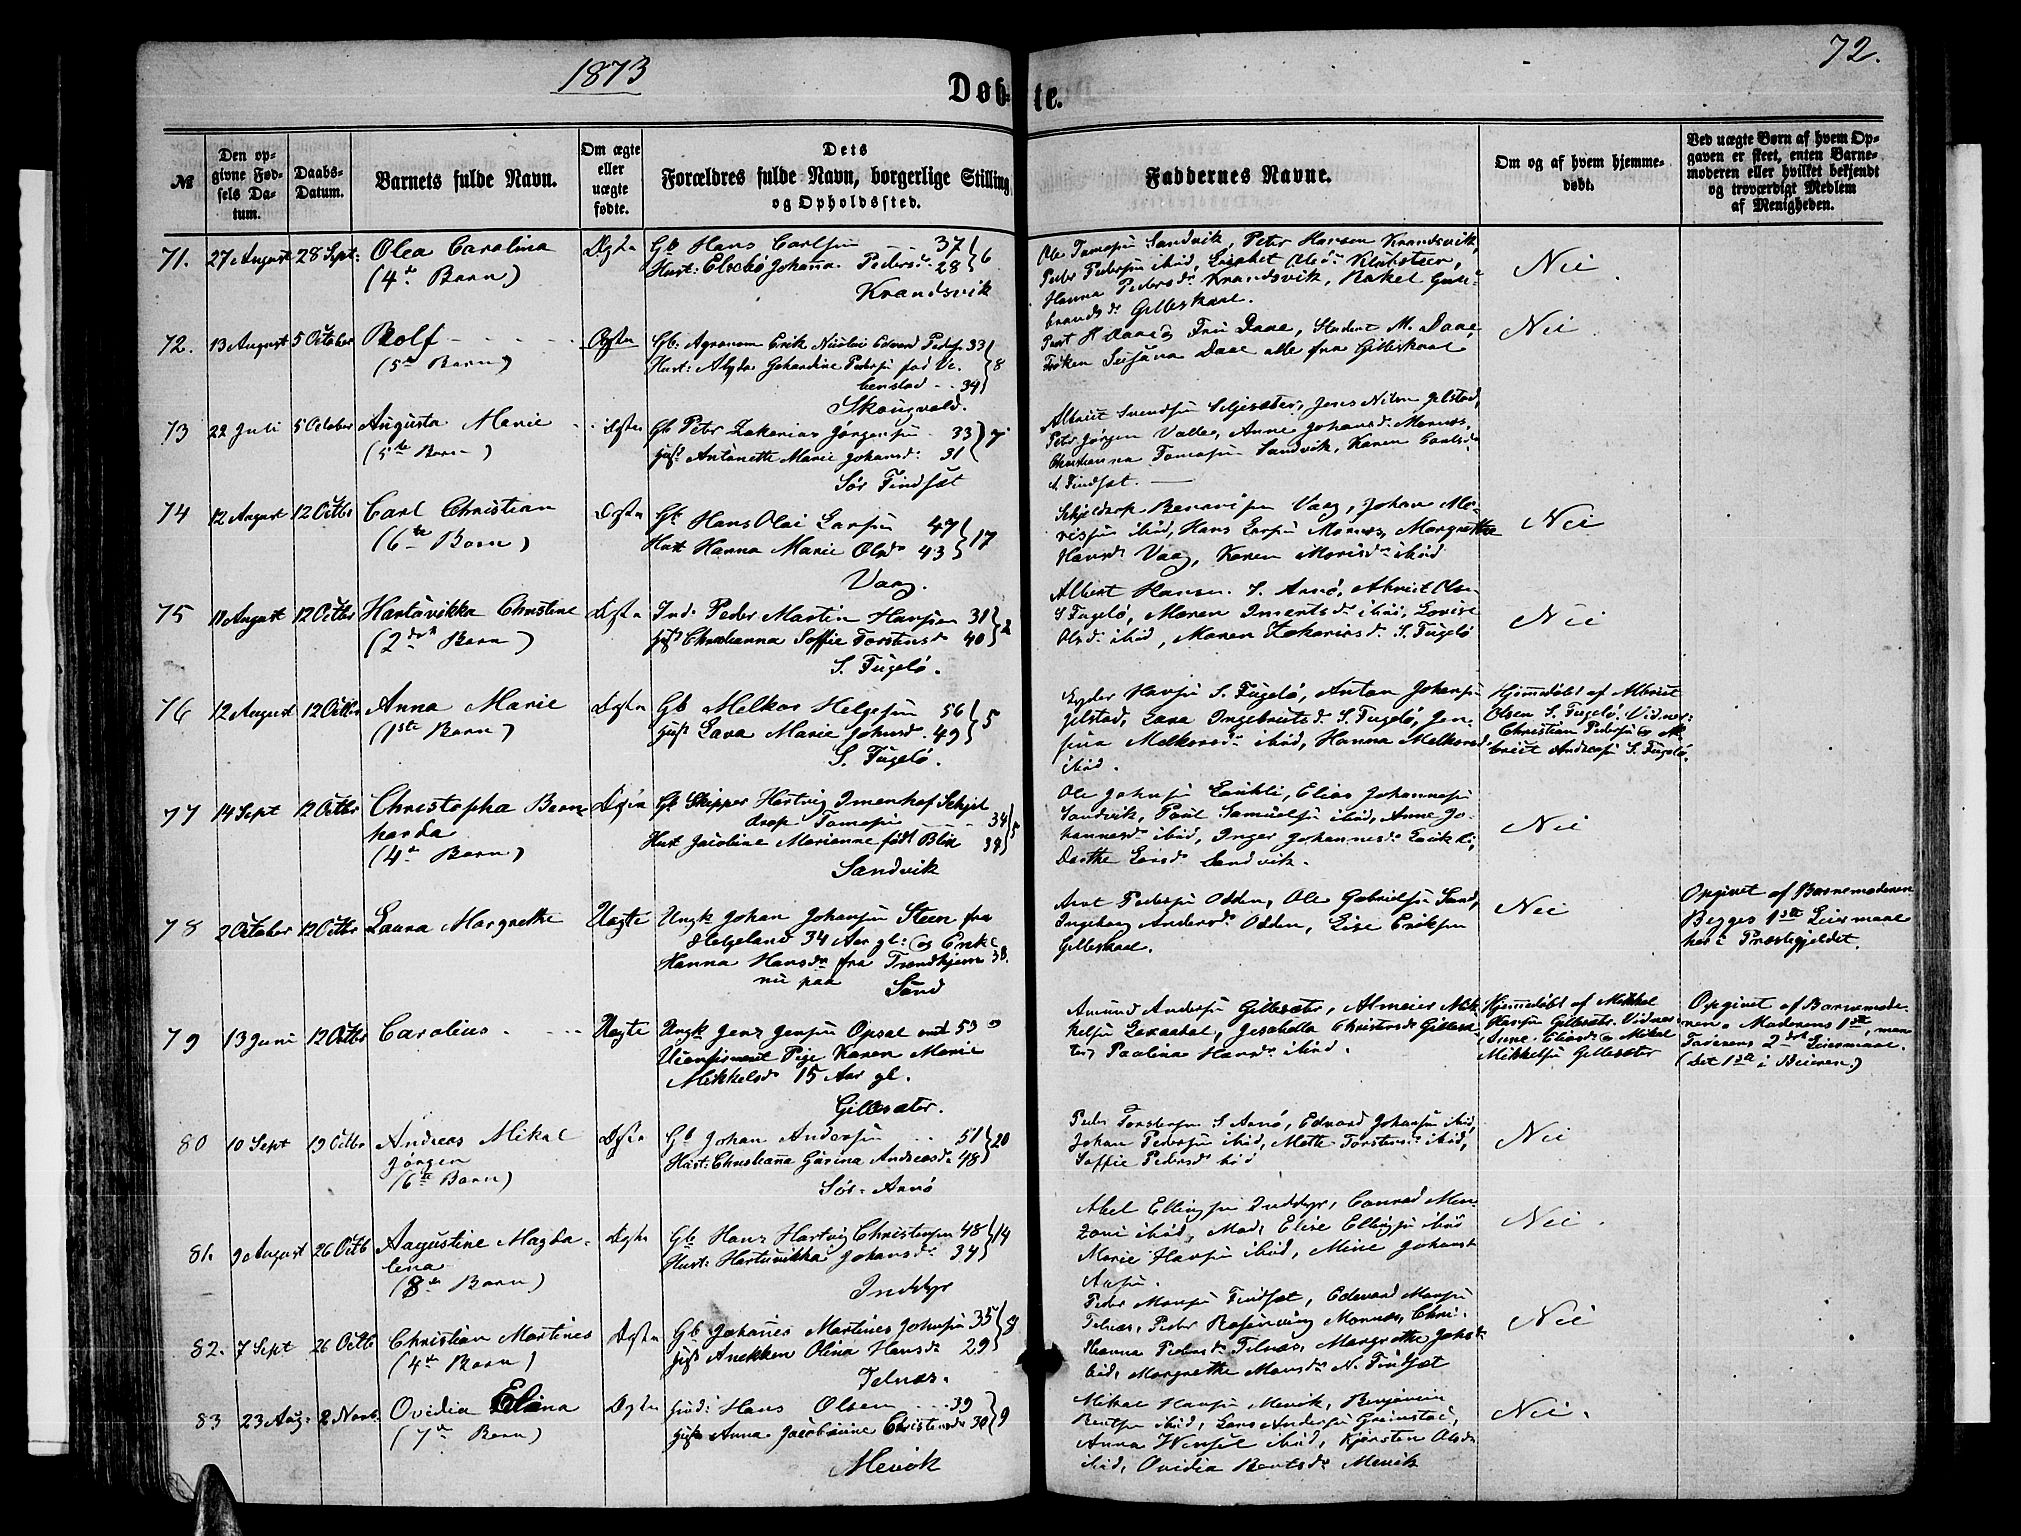 1873
72.
Døbte.
№
Den opgivne Fødsels Datum.
Daabs-Datum.
Barnets fulde Navn.
Om ægte eller uægte fødte.
Dets Forældres fulde Navn, borgerlige Stilling og Opholdssted.
Faddernes Navne.
Om og af hvem hjemmedøbt.
Ved uægte Børn af hvem Opgaven er skeet, enten Barnemoderen eller hvilket bekjendt og troværdigt Medlem af Menigheden.
71. 27 August 28 Sept: Olea Carolina
(4de Barn)
Gb Hans Carlsen 37 } 6
Hust: Johanna Pedersd. 28
Krandsvik
Ole Tomasen Sandvik, Peter Hansen Krandsvik,
Peder Pedersen ibid,
Hanna Pedersdr Krandsvik, Rakel Gudbrandsdr Gilleskaal.
Nei
72. 13 August 5 October Rolf
(5te Barn)
Gb: Agronom Erik Nicolai Edvard Peders. 33 } 8
34
Skougvold.
Fru Daae, Student M. Daae,
Frøken Susanna Daae alle fra Gilleskaal
Nei
73 22 Juli 5 October Augusta Marie
(5te Barn)
Gb Peter Zakarias Jørgensen 33 } 7
Hust Antonette Marie Johansd: 31
Sør Findsæt
Jens Nilsen Jelstad,
Peter Jørgen Valle, Anne Johansd. Mornes,
Christianna Tomasen Sandvik, Karen Carlsdr
N. Findsæt.
74 12 August 12 Octbr Carl Christian
(6te Barn)
Gb Hans Olai Larsen 47 } 17
Hust Hanna Marie Olsdr 43
Vaag.
Vaag, Johan Morisen ibid, Hans Larsen Mornes, Margrethe
Hansdr Vaag, Karen Morisdr ibid
Nei
75 11 August 12 Octbr Hartvikka Christine
(2det Barn)
Ind: Peder Martin Hansen 31 } 2
Hust Christianna Soffie Torstensd 40
S. Fugelø.
Albert Hansen S. Arnø, Olsen
S Fugelø, Maren ibid, Lovise
Olsd. ibid, Maren Zakariasd. S. Fugelø
Nei
76 12 August 12 Octbr Anna Marie
(1ste Barn)
Gb Melkor Helgesen 56 } 5
Hust Lava Marie Johnsd. 49
S. Fugelø.
Hansen S. Fugelø, Anton Johansen
Jelstad, Lava Ingebrigtsd. S. Fugelø,
Melkorsdr ibid, Hanna Melkorsd
ibid.
Hjemedøbt af Albrigt
Olsen S. Fugelø. Vidner:
Christian Pedersen og
Andreasen S. Fugelø.
77 14 Sept 12 Octbr Christopha Bernharda
(4de Barn)
Gb Skipper Hartvig Imenhof Schjeldrop Tomasen 34 } 5
Hust Jacoline Marianne født Blix 34
Sandvik
Ole Johnsen Leikli, Elias Johannesen
Sandvik, Paul Samuelsen ibid, Anne Johannesd: ibid, Inger Johannesd. Leikli,
Dorthe Larsd. Sandvik.
Nei
78 2 October 12 Octbr Laura Margrethe
Uægte
Ungk Johan Johansen Steen fra
Helgeland 34 Aar gl: og Enke
Hanna Hansdr fra Trondhjem 38.
nu paa Sand
Arnt Pedersen Odden, Ole Gabrielsen Sand,
Ingeborg Andersdr Odden, Lise Eriksen
Gilleskaal.
Nei
Opgivet af Barnemoderen
Begges 1ste Leiermaal
her i Præstegjeldet.
79 13 Juni 12 Octbr Carolius
Uægte
Ungk Jens Jensen Opsal 53
Uconfirmeret Pige Karen Marie
Mikkelsdr 15 Aar gl.
Gillesæter.
Amund Andersen Gillesæter, Almeier Mikkelsen Lexaadal, Jesabella Christensd. Gillesæter, Paulina Hansdr ibid.
Hjemedøbt af Mikkel
Hansen Gillesæter. Vidner:
Anne Eliasd. og Mikal
Mikkelsen Gillesæter
Opgivet af Barnemoderen. Moderens 1ste, men
Faderens 2det Leiermaal.
(Det 1ste i Beieren.)
80 10 Sept 19 Octbr Andreas Mikal
Jørgen
(6te Barn)
Gb Johan Andersen 51 } 20
Hust: Christianna Gurina Andreasdr 48
Sør-Arnø
Peder Torstensen S Arnø, Edvard Johansen ibid,
Johan Pedersen ibid, Mette Torstensd ibid,
Soffie Pedersd ibid
Nei
81. 9 August 26 Octb Augustine Magdalena
(8de Barn)
Gb Hans Hartvig Christensen 48 } 14
Hust: Hartvikka Johansd. 34
Inddyr
Abel Ellingsen Inddyr, Conrad
ibid, Mad. Elise Ellingsen ibid
Marie Hansen ibid, Mine
Nei.
82. 7 Sept 26 Octb Christian Martines
(4de Barn)
Gb Johannes Martines Johnsen 35 } 8
Hust Anekken Olina Hansdr 29
Felnæs.
Peder Monsen Findset, Edevard Monsen
Felnæs, Peder Rosenving Mornes, Christianna Pedersdr Felnæs, Margrethe
ibid, Margrethe Monsdr N. Findsæt
Nei
83 23 Aug. 2 Novb. Ovidia Elena
(7de Barn)
Ind: Hans Olsen 39 } 9
Hust Anna Jacobmine Christensdr 30
Mevik
Mikal Hansen Mevik, Benjamin
ibid, Lars Andersen Grimstad,
Anna ibid, Kjersten Olsdr
ibid, Ovidia Bentsdr Mevik
Nei.